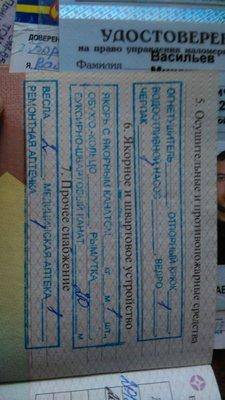 УДОСТОВЕРЕ
на право управления маломер
Фамилия
Васильев
5. Осушительные и противопожарные средства
ОГНЕТУШИТЕЛЬ ОТПОРНЫЙ КРЮК
ВОДООТЛИВНОЙ НАСОС ВЕДРО 1
ЧЕРПАК
6. Якорное и швартовое устройство
ЯКОРЬ С ЯКОРНЫМ КАНАТОМ кг, м 1 шт.,
ОБУХО-КОЛЬЦО РЫМ/УТКА
БУКСИРНО-ШВАРТОВЫЙ КАНАТ м
7. Прочее снабжение
ВЕСЛА 2 МЕДИЦИНСКАЯ АПТЕЧКА 1
РЕМОНТНАЯ АПТЕЧКА